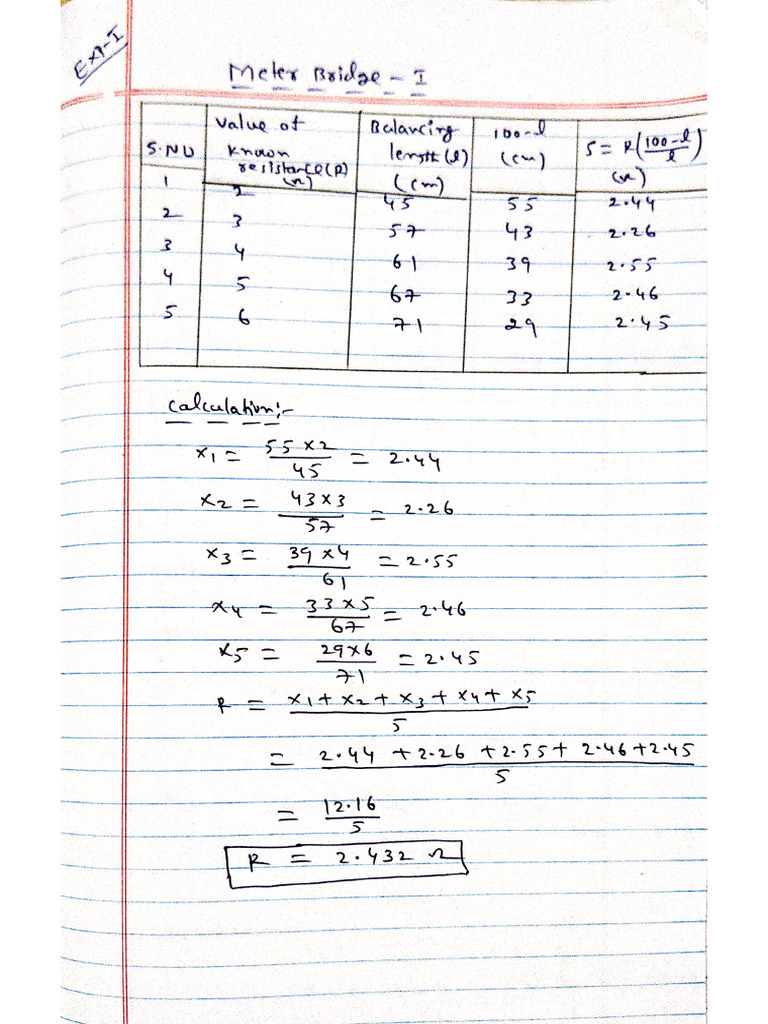 Exp-I
Meter Bridge - I
S.NO | Value of Known resistance(R) (Ω) | Balancing length(l) (cm) | 100-l (cm) | S = R(100-l/l) (Ω)
1 | 2 | 45 | 55 | 2.44
2 | 3 | 57 | 43 | 2.26
3 | 4 | 61 | 39 | 2.55
4 | 5 | 67 | 33 | 2.46
5 | 6 | 71 | 29 | 2.45
Calculation:-
x1 = 55×2/45 = 2.44
x2 = 43×3/57 = 2.26
x3 = 39×4/61 = 2.55
x4 = 33×5/67 = 2.46
x5 = 29×6/71 = 2.45
R = x1 + x2 + x3 + x4 + x5/5
= 2.44 + 2.26 + 2.55 + 2.46 + 2.45/5
= 12.16/5
R = 2.432 Ω